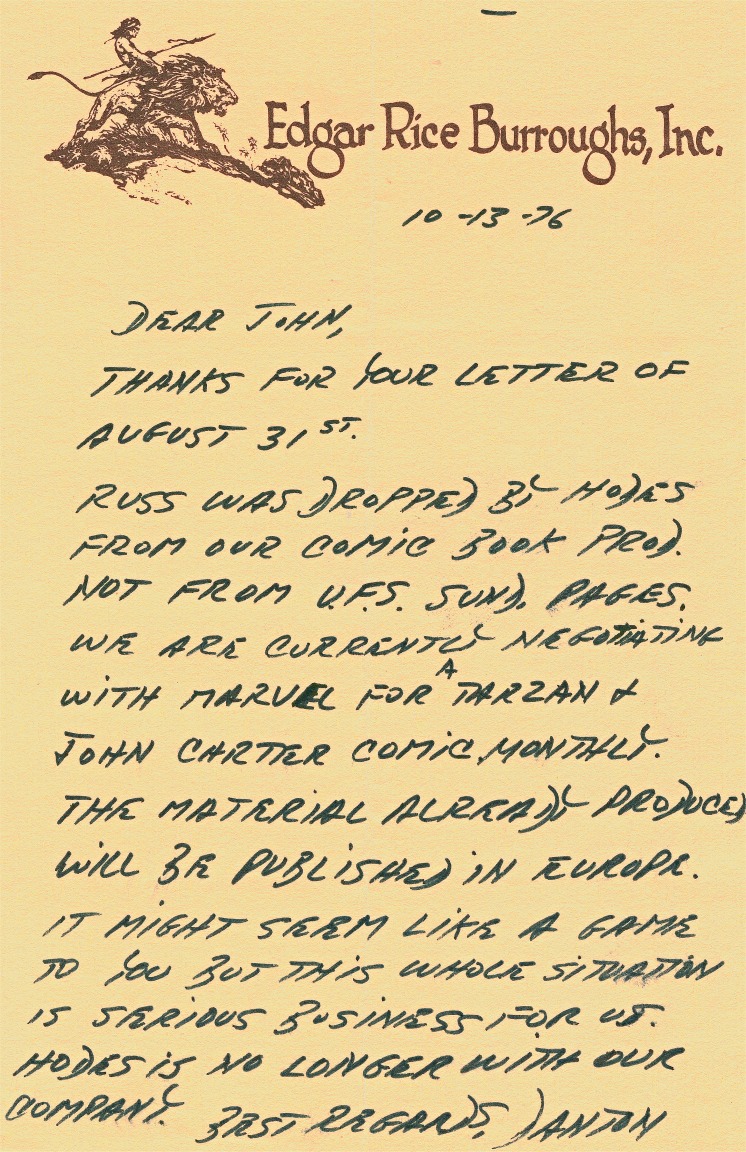 Edgar Rice Burroughs, Inc.
10-13-76
DEAR JOHN,
THANKS FOR YOUR LETTER OF
AUGUST 31ST.
RUSS WAS DROPPED BY HODES
FROM OUR COMIC BOOK PROD.
NOT FROM U.F.S. SUND. PAGES.
WE ARE CURRENTLY NEGOTIATING
WITH MARVEL FOR A TARZAN &
JOHN CARTER COMIC, MONTHLY.
THE MATERIAL ALREADY PRODUCED
WILL BE PUBLISHED IN EUROPE.
IT MIGHT SEEM LIKE A GAME
TO YOU BUT THIS WHOLE SITUATION
IS SERIOUS BUSINESS FOR US.
HODES IS NO LONGER WITH OUR
COMPANY. BEST REGARDS, DANTON